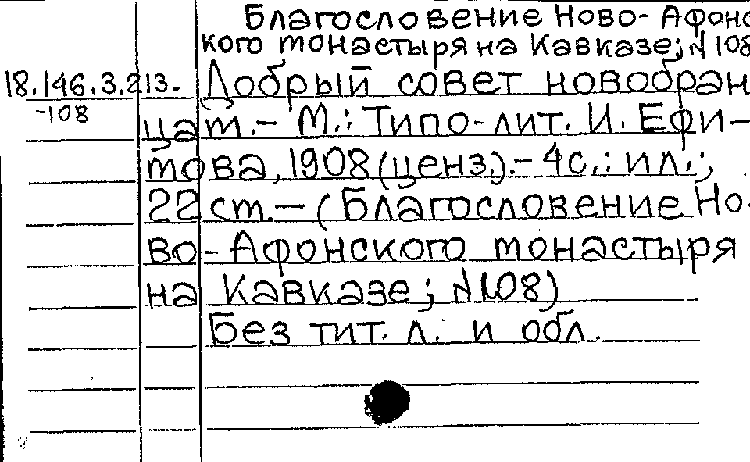 Благословение Ново-Афонс
кого монастыря на Кавказе; №108
18.146.3.213-
-108
Добрый совет новобран
цам.- М.: Типо-лит. И. Ефи-
мова, 1908 (ценз.).- 4с.: ил.;
22см.- (Благословение Но-
во-Афонского монастыря
на Кавказе; №108)
Без тит. л. и обл.